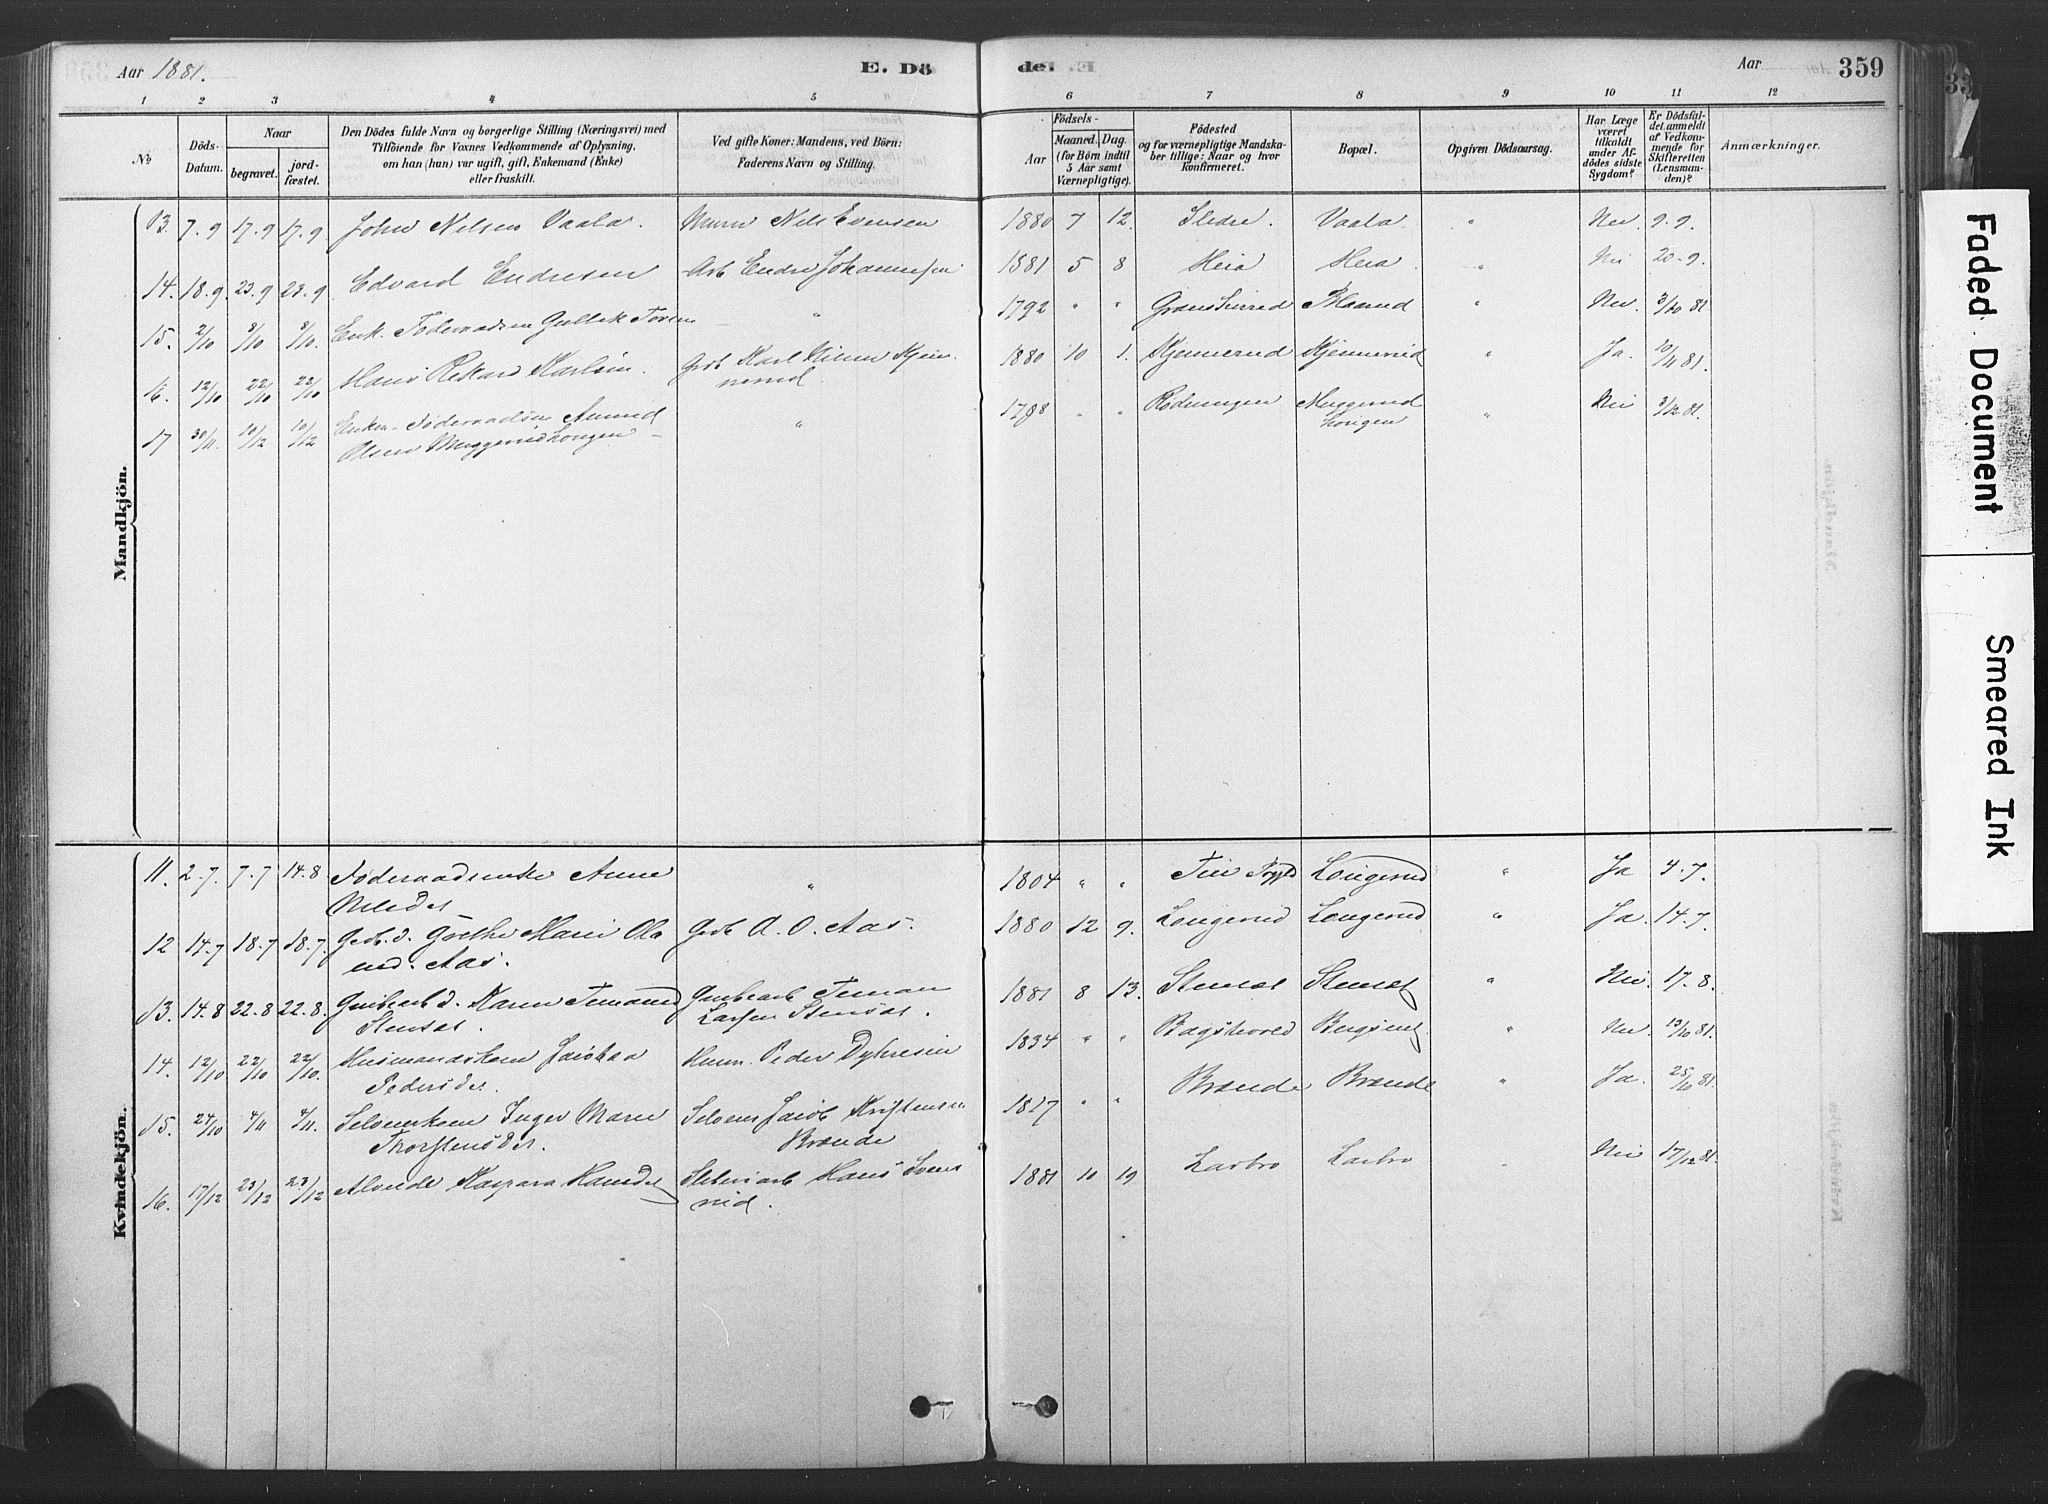 Aar 1881.
E. Dö
de. E.
Aar
359
1 2 3 4 5
6 7 8 9 10 11 12
No
Döds-
Datum.
Naar
begravet.
jord-
fæstet.
Den Dödes fulde Navn og borgerlige Stilling (Næringsvei) med
Tilföiende for Voxnes Vedkommende af Oplysning,
om han (hun) var ugift, gift, Enkemand (Enke)
eller fraskilt.
Ved gifte Koner: Mandens, ved Börn:
Faderens Navn og Stilling.
Födsels-
Aar
Maaned. Dag.
(for Börn indtil
5 Aar samt
Værnepligtige).
Födested
og for værnepligtige Mandska-
ber tillige: Naar og hvor
konfirmeret.
Bopæl.
Opgiven Dödsaarsag.
Har Læge
været
tilkaldt
under Af-
dödes sidste
Sygdom?
Er Dödsfal-
det anmeldt
af Vedkom-
mende for
Skifteretten
(Lensman-
den)?
Anmærkninger.
Mandkjön.
13. 7.9 17.9 17.9 John Nelsen Vaala. Murer Nils Evensen 1880 7 12. Slidre. Vaala. " Nei. 9.9.
14. 18.9. 23.9 23.9 Edvard Endresen Arb Endre Johannesen 1881 5 8 Heia Heia " Nei 20-9.
15. 2/10 8/10 8/10. Enk. Föderaadsm Gullik Toren " 1792 " " Granshered " Nei. 3/10 81
16. 12/10 22/10 22/10 Hans Rikard Karlsen. Grdb Karl Kjen-
nerud. 1880 10 1. Kjennerud Kjennerud " Ja. 10/11 81.
17 30/11. 10/12 10/12 Enkem. Föderaadsm Amund
Olsen Muggerudhougen " 1788 " " Muggerud
hougen " Nei 3/12 81.
Kvindekjön.
11. 2-7. 7-7 14.8 Föderaadsenke Anne
Nilsdtr " 1804 " " Lougerud " Ja 4-7.
12 14.7 18-7 18.7 Grdb. d. Grethe Marie Ola
ned. Aas. Grdb O. O. Aas. 1880 12 9. Lougerud Lougerud " Ja. 14-7.
13. 14.8 22.8 22.8. Grubearb d. Karen Timand
Stensæt. Grubearb Timan
Larsen Stensæt. 1881 8 13. Stensæt Stensæt " Nei. 17.8.
14. 12/10 22/10 22/10. Husmandskone
Pedersdtr. Husm. Peder Dyhresen 1834 " " " Nei. 13/10 81.
15. 24/10 4/11 4/11. Selveierkone Inger Marie
Thorstensdtr. Selveier Jacob Kristensen
Brænde 1827 " " Brænde Brænde " Ja. 25/10 81.
16. 17/12 23/12 23/12 Alvilde Kaspara Hansdtr Hans Svens
rud. 1881 10 19 Laabro Laabro Nei 17/12 81.
Faded Document
Smeared Ink